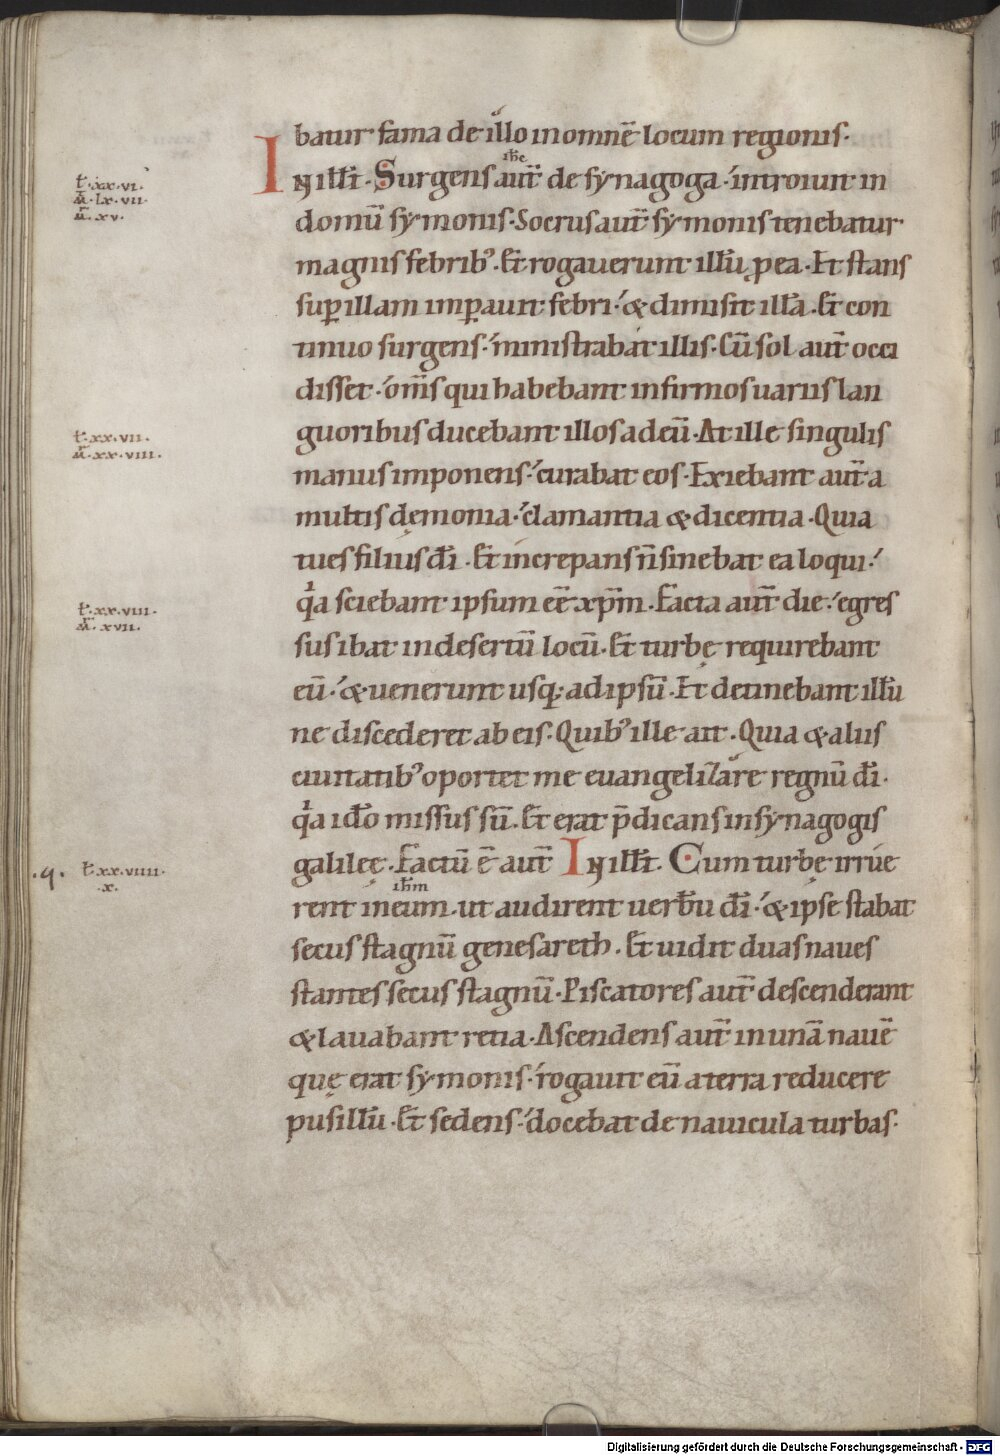 batur fama de illo in omnē locum regionis·
t· xx·vi·
M̄· lx·vii·
M̄· xv·
ihc
IN ill̄ t̄· Surgens aut̄ de synagoga· introiuit in
domū symonis· Socrus aut̄ symonis tenebatur
magnis febribꝰ· Et rogauerunt illū p ea· Et stans
suꝑ illam imꝑauit febri· & dimisit illā· Et con
tinuo surgens· ministrabat illis· Cū sol aut̄ occi
disset· om̄s qui habebant infirmos uariis lan
t· xx·vii·
M̄· xx·viii·
guoribus ducebant illos ad eū· At ille singulis
manus imponens· curabat eos· Exiebant aut̄ a
multis dęmonia· clamantia & dicentia· Quia
tu es filius dī· Et increpans n̄ sinebat ea loqui·
t· xx·viii·
M̄· xvii·
qͥa sciebant ipsum eē xp̄m· Facta aut̄ die· egres
sus ibat in desertū locū· Et turbę requirebant
eū· & uenerunt usq; ad ipsū· Et detinebant illū
ne discederet ab eis· Quibꝰ ille ait· Quia & aliis
ciuitatibꝰ oportet me euangelizare regnū dī·
qͥa idō missus sū· Et erat p̄dicans in synagogis
·q· t· xx·viiii·
·x·
galileę· Factū ē aut̄ IN ill̄ t̄· Cum turbę irrue
ihm̄
rent in eum· ut audirent uerbū dī· & ipse stabat
secus stagnū genesareth· Et uidit duas naues
stantes secus stagnū· Piscatores aut̄ descenderant
& lauabant retia· Ascendens aut̄ in unā nauē
quę erat symonis· rogauit eū a terra reducere
pusillū· Et sedens· docebat de nauicula turbas·
Digitalisierung gefördert durch die Deutsche Forschungsgemeinschaft - DFG